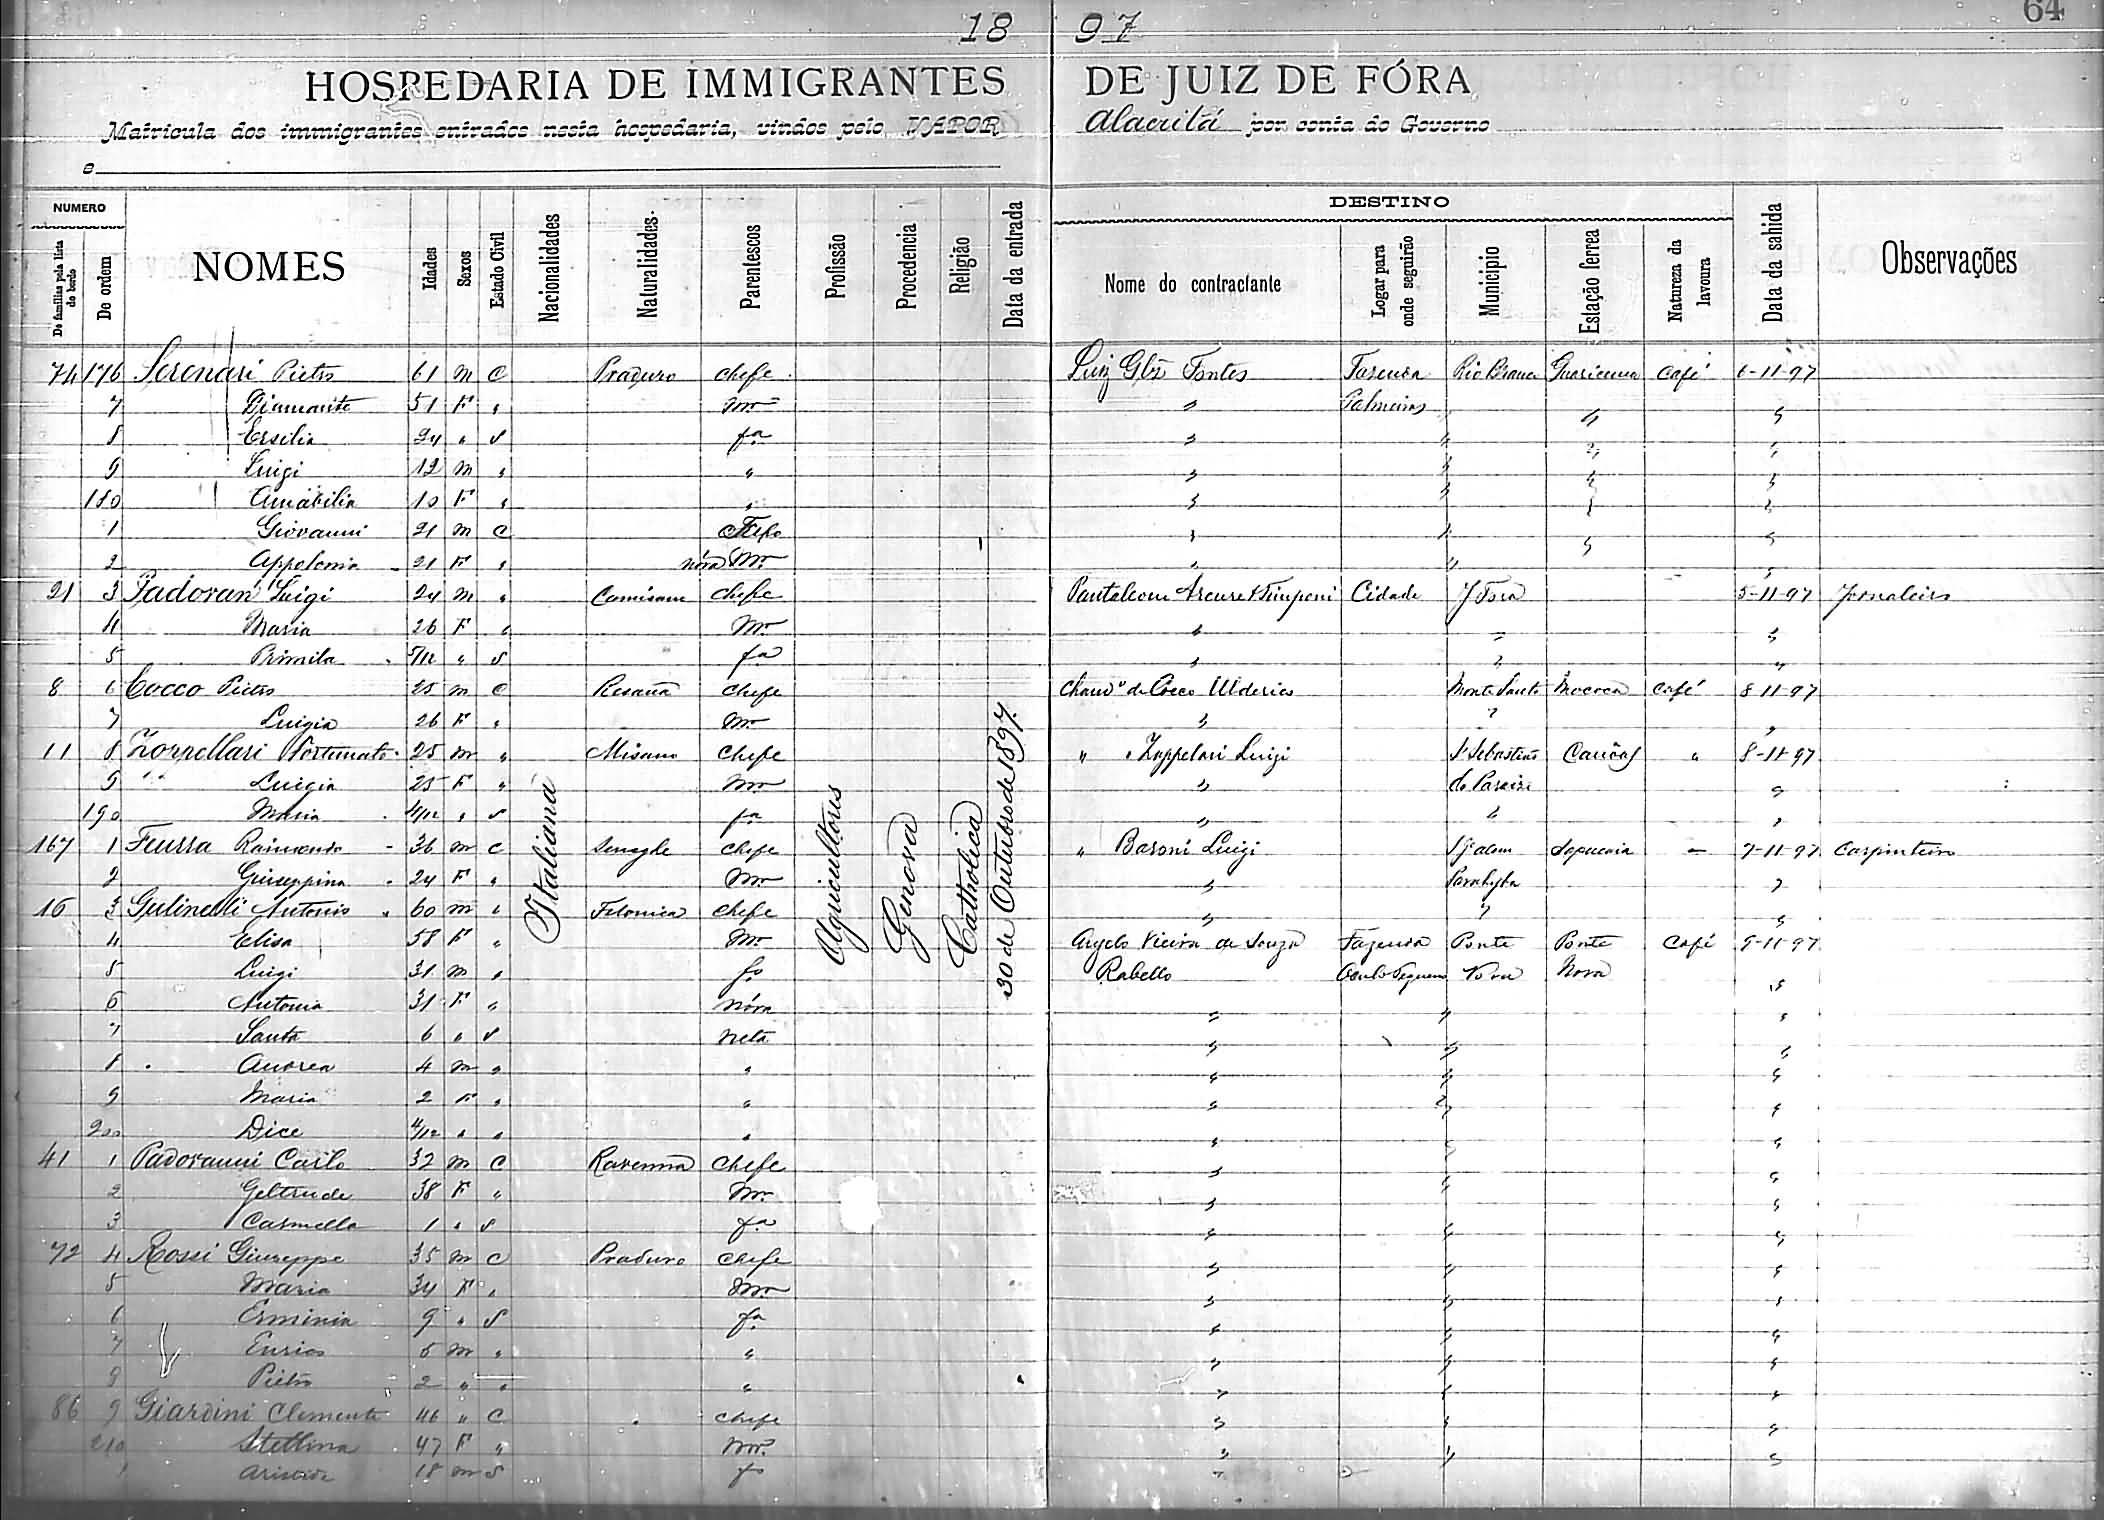 64
18 97
HOSPEDARIA DE IMMIGRANTES DE JUIZ DE FÓRA
Matricula dos immigrantes entrados nesta hospedaria, vindos pelo VAPOR Alacritá por conta do Governo
e
NUMERO
De familias pela lista do bordo
De ordem
NOMES
Idades
Sexos
Estado Civil
Nacionalidades
Naturalidades.
Parentescos
Profissão
Procedencia
Religião
Data da entrada
DESTINO
Nome do contractante
Logar para onde seguirão
Municipio
Estação ferrea
Natureza da lavoura
Data da sahida
Observações
74 176 Serenari Pietro 61 m C Praduro chefe Luiz Fontes Fazenda Rio Branco café 6-11-97
7 Diamante 51 F " Mer " Palmeiras " "
8 Ersilia 24 " S fa " " " "
9 Luigi 12 m " " " " " "
180 Amabilia 10 F " " " " " "
1 Giovanni 21 m C " " " "
2 Appolonia 21 F " nóra " " "
21 3 Padovan Luigi 24 m " chefe Pantaleone Arcure & Timponi Cidade J Fora 5-11-97 Jornaleiro
4 Maria 26 F " Mer " " "
5 5/12 " S fa " " "
8 6 Cocco Pietro 25 m C chefe de Cocco Ulderico Monte Santo Mococa café 8-11-97
7 Luigia 26 F " Mer " " "
11 8 Fortunato 25 m " Misano chefe " " Zappelari Luigi S Sebastião Canôas " 8-11-97
9 " " Luigia 25 F " Mer " do Paraizo "
190 Maria 4/12 " S fa " " "
167 1 Feurra Raimondo 36 m C Senaghe chefe " Baroni Luigi S J alem Sapucaia - 7-11-97 Carpinteiro
2 Giuseppina 24 F " Mer " Parahyba "
16 3 Gulinelli Antonio 60 m " Felonica chefe " " "
4 Elisa 58 F " Mer Angelo Vieira de Souza Fazenda Ponte Ponte café 9-11-97
5 Luigi 31 m " fo Rabello Nova Nova "
6 Antonia 31 F " Nóra " " "
7 Santa 6 " S neta " " "
8 Andrea 4 m " " " " "
9 Maria 2 F " " " " "
200 Dice 4/12 " " " " " "
41 1 Padovanni Carlo 32 m C Ravenna chefe " " "
2 Geltrude 38 F " Mer " " "
3 Carmella 1 " S fa " " "
72 4 Rossi Giuseppe 35 m C Praduro chefe " " "
5 Maria 34 F " Mer " " "
6 Erminia 9 " S fa " " "
7 Enrico 5 m " " " " "
8 Pietro 2 " " " " " "
86 9 Giardini Clemente 46 " C chefe " " "
210 Stellina 47 F " Mer " " "
1 Aristide 18 m S fo "
Italiana
Agricultores
Genova
Catholica
30 de Outubro de 1897.